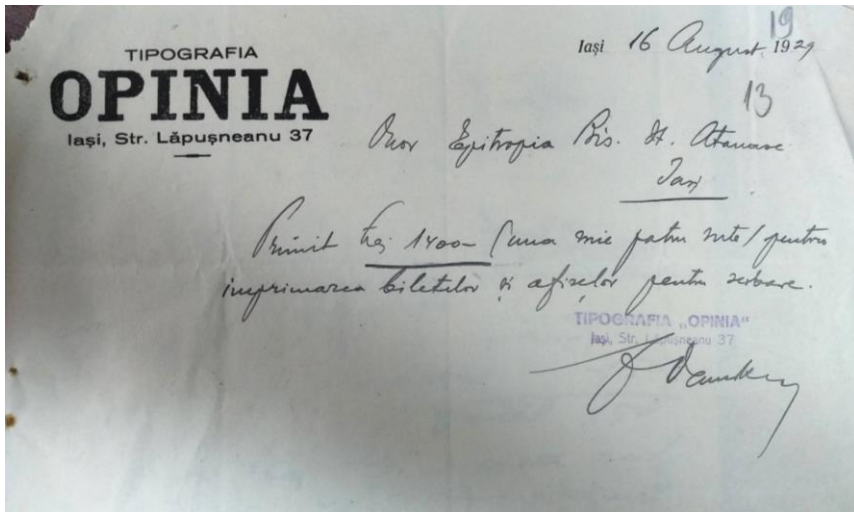 19
TIPOGRAFIA
OPINIA
Iași, Str. Lăpușneanu 37
Iași 16 August 1929
13
Onor Epitropia Bis. Sf. Atanasie
Iași
Primit Lei 1400- (una mie patru sute/ pentru
imprimarea biletelor și afișelor pentru serbare.
TIPOGRAFIA „OPINIA"
Iași, Str. Lăpușneanu 37